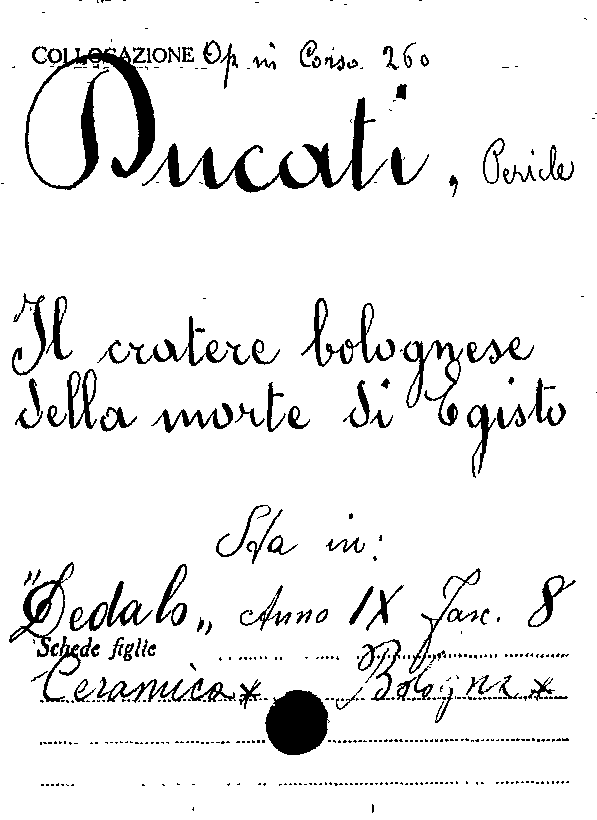 COLLOCAZIONE Op in Corso 260
Ducati, Pericle
Il cratere bolognese
della morte di Egisto
Sta in:
"Dedalo„ Anno IX Fasc. 8
Schede figlie
Ceramica* Bologna *